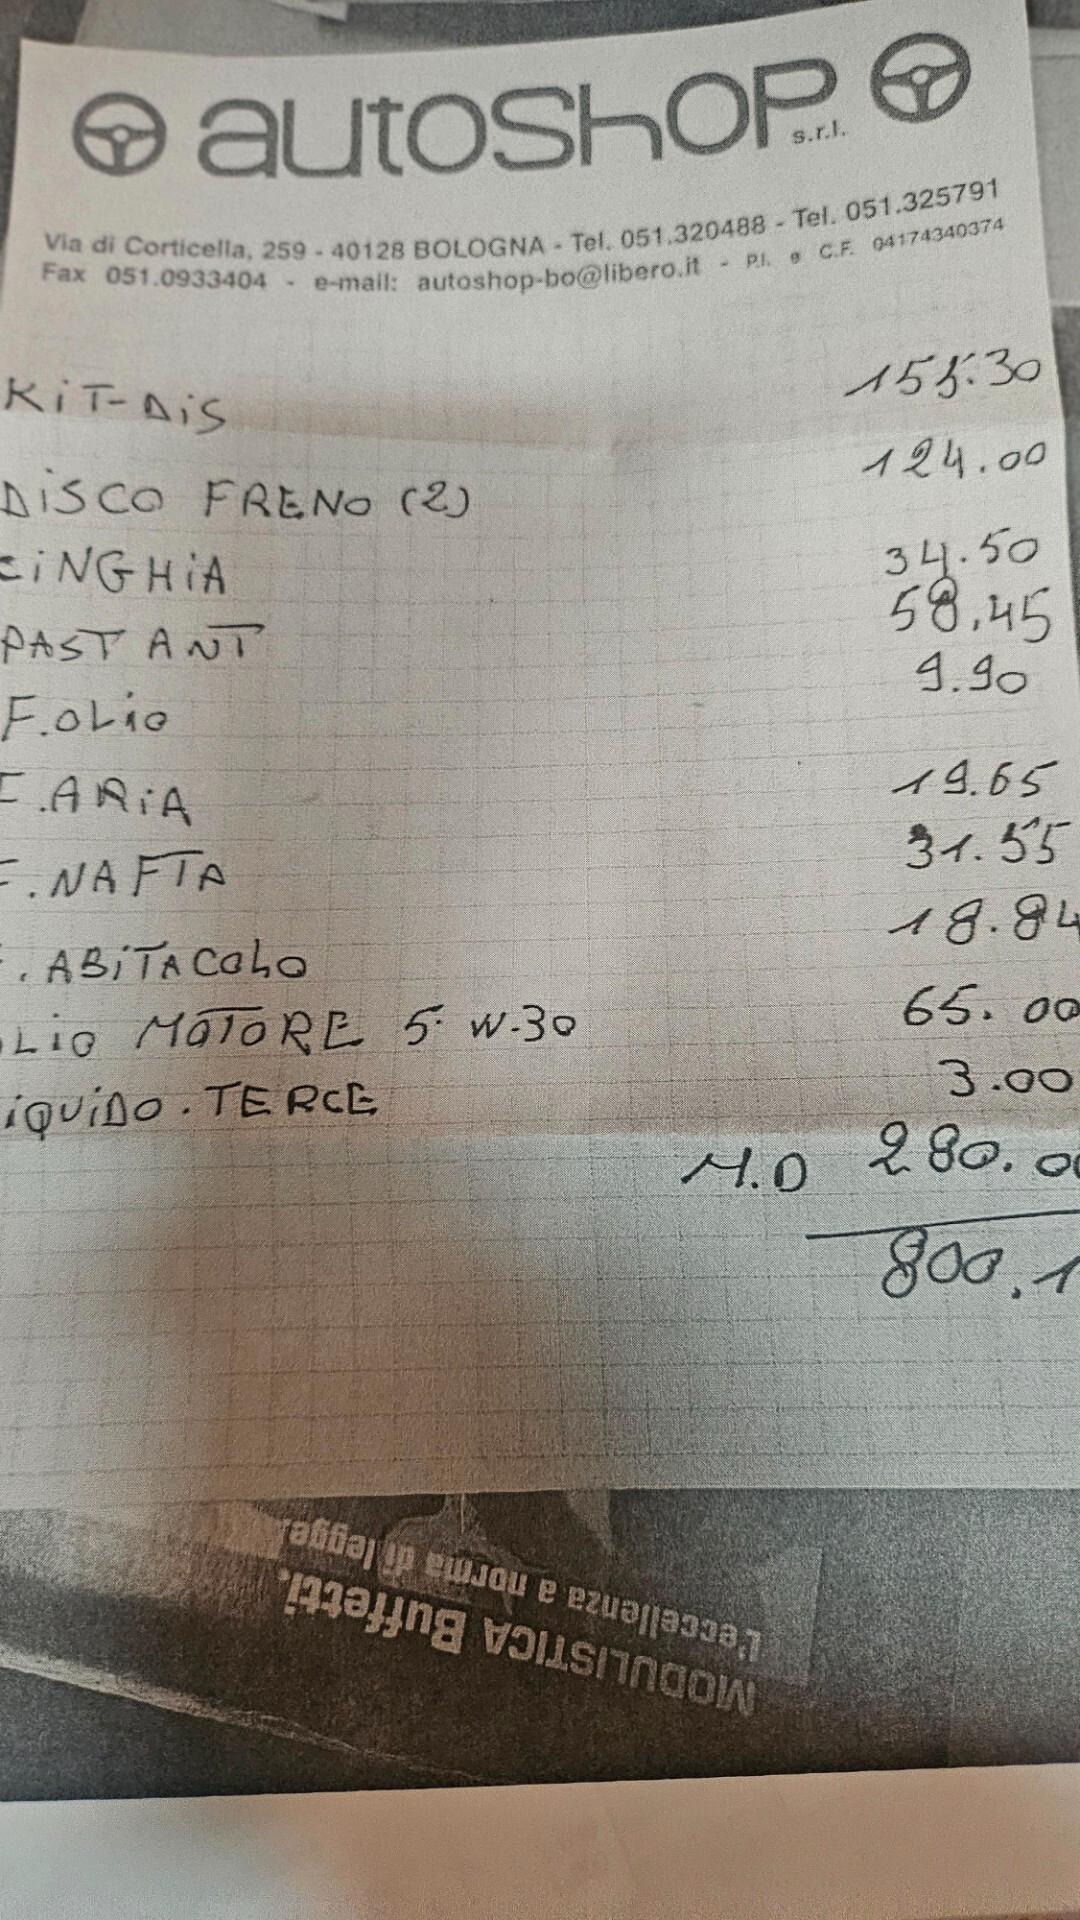 autoshop s.r.l.
Via di Corticella, 259 - 40128 BOLOGNA - Tel. 051.320488 - Tel. 051.325791
Fax 051.0933404 - e-mail: autoshop-bo@libero.it - P.I. e C.F. 04174340374
KiT-DiS 155.30
DiSCO FRENO (2) 124.00
CiNGHiA 34.50
PAST ANT 58,45
F.OLio 9.90
F.ARiA 19.65
F.NAFTA 31.55
F.ABiTACOLO 18.84
OLiO MOTORE 5 W-30 65.00
LiQUiDO.TERCE 3.00
M.D 280.00
800,1
L'eccellenza a norma di legge.
MODULISTICA Buffetti.